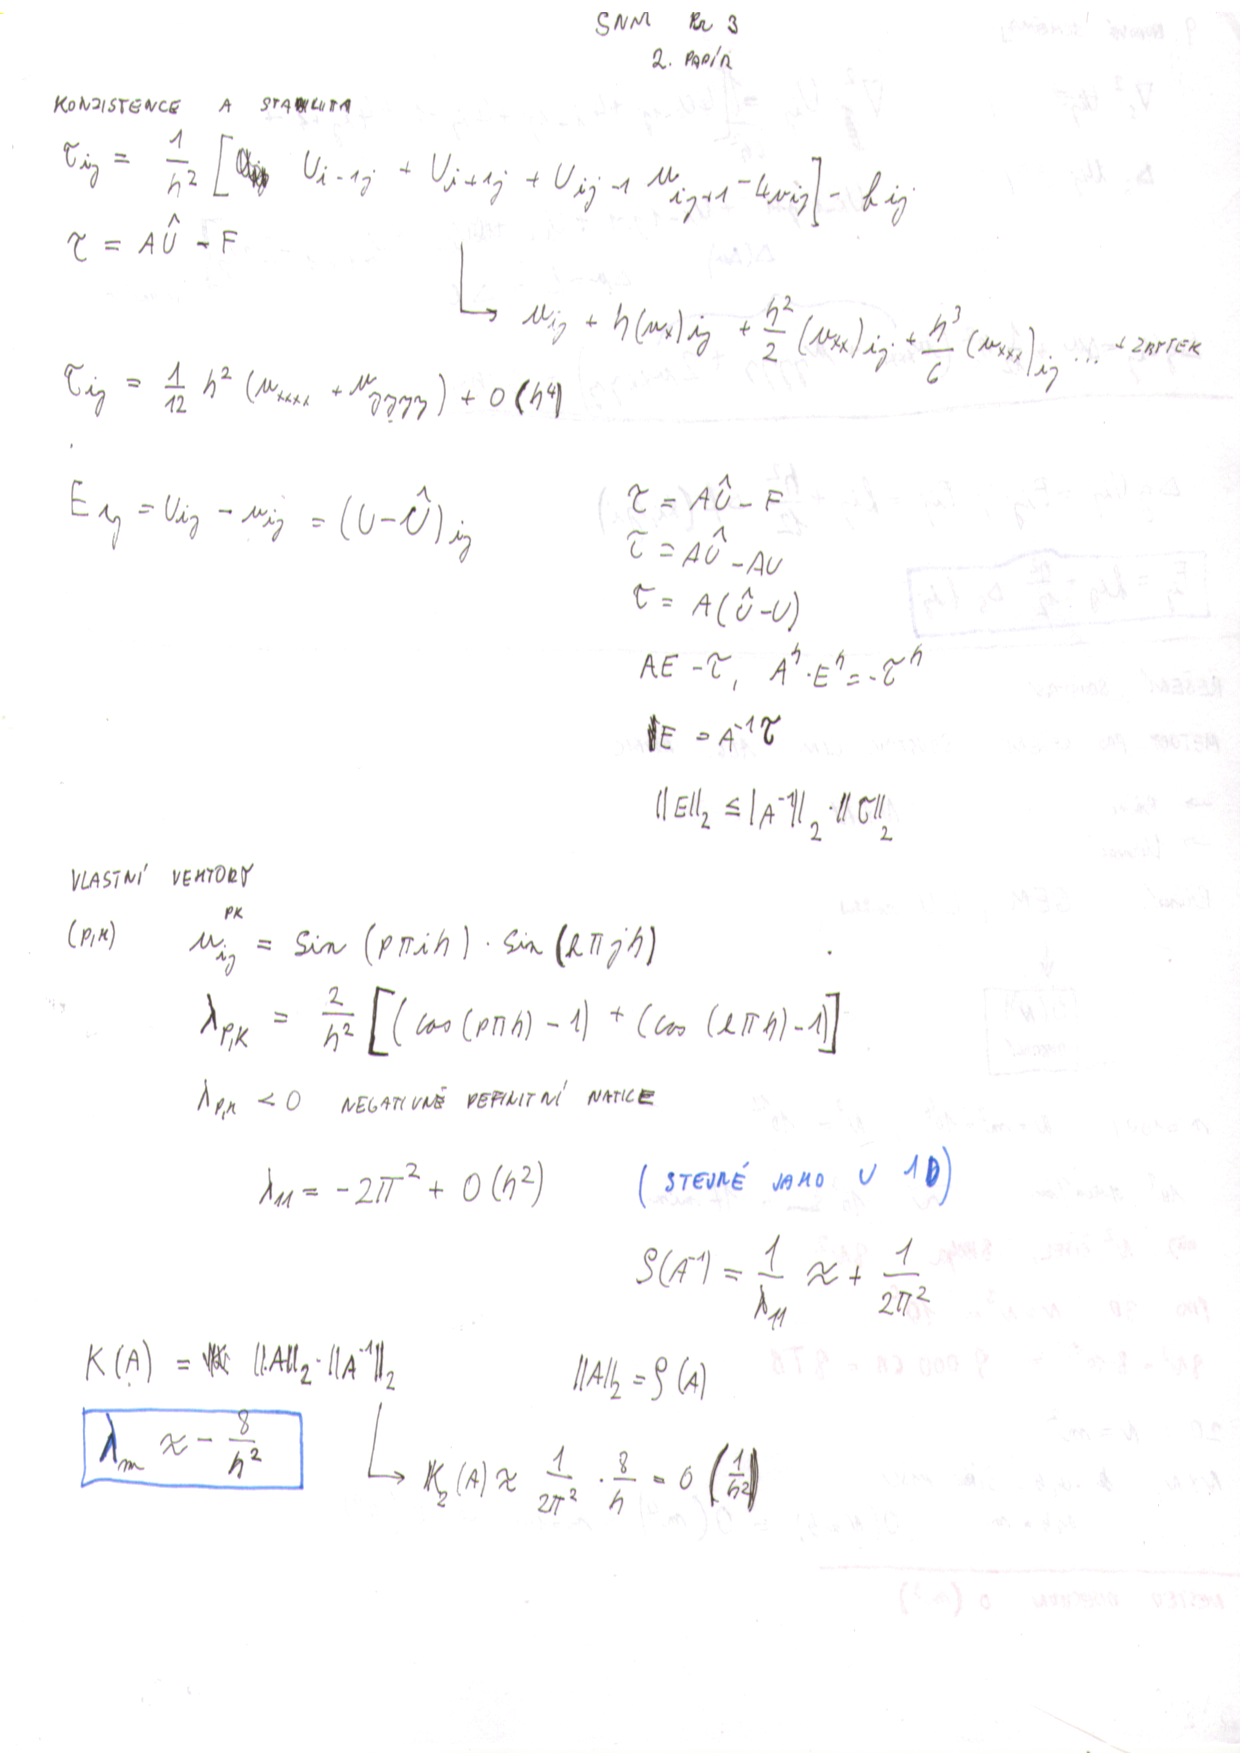 SNM Př 3
2. PAPÍR
KONZISTENCE A STABILITA
τij = 1/h² [ Ui-1j + Ui+1j + Uij-1 uij+1 - 4uij ] - fij
τ = AÛ - F
↳ uij + h(ux)ij + h²/2 (uxx)ij + h³/6 (uxxx)ij ... + ZBYTEK
τij = 1/12 h² (uxxxx + uyyyy) + O(h⁴)
Eij = Uij - uij = (U - Û)ij
τ = AÛ - F
τ = AÛ - AU
τ = A(Û - U)
AE - τ, Aʰ · Eʰ = -τʰ
E = A⁻¹τ
||E||₂ ≤ |A⁻¹||₂ · ||τ||₂
VLASTNÍ VEKTORY
(p,k) uij^pk = sin (pπih) · sin (kπjh)
λp,k = 2/h² [(cos(pπh) - 1) + (cos (kπh) - 1)]
λp,k < 0 NEGATIVNĚ DEFINITNÍ MATICE
λ11 = -2π² + O(h²) (STEJNÉ JAKO V 1D)
ρ(A⁻¹) = 1/λ11 ≈ + 1/2π²
K(A) = ||A||₂ · ||A⁻¹||₂ ||A||₂ = ρ(A)
λm ≈ - 8/h²
↳ K₂(A) ≈ 1/2π² · 8/h = O(1/h²)